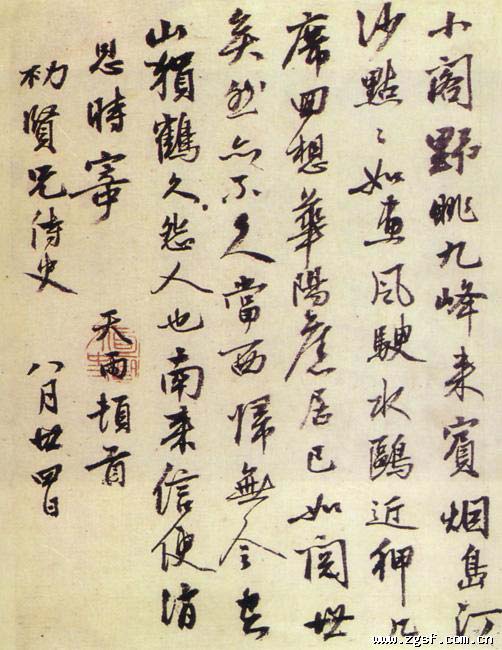 小閣野眺九峰来賓烟島汀
沙點〻如畫風駛水鷗近狎几
席回想華陽舊居已如閱世
矣然亦不久當西歸無令空
山猨鶴久怨人也南来信便消
息時寄 天雨頓首
賢兄侍史 八月廿四日
www.zgsf.com.cn